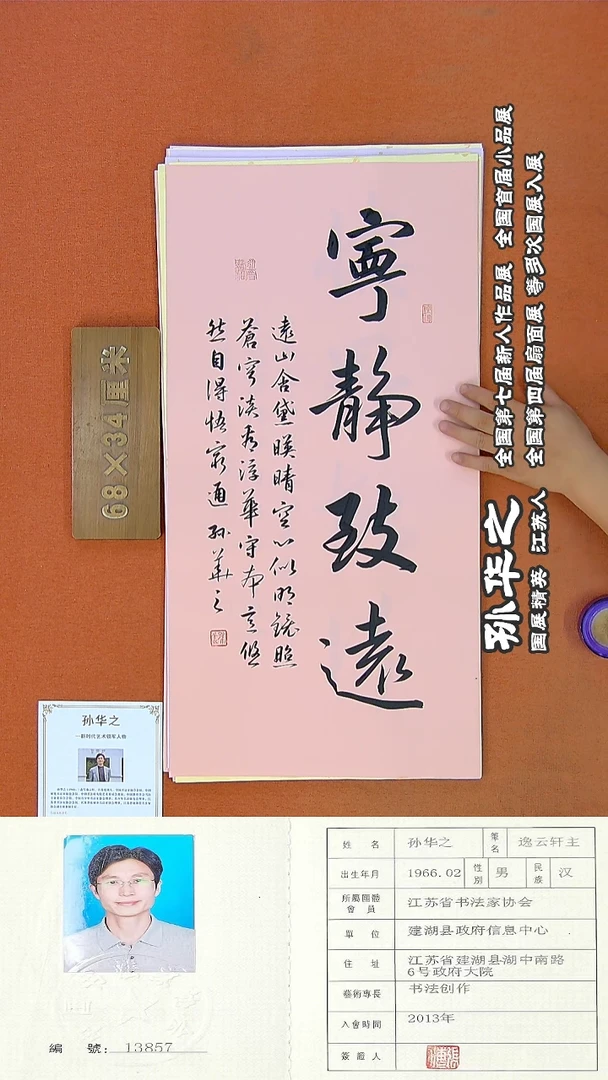 寧靜致遠
遠山含黛暎晴空心似明鏡照
蒼穹淡看浮華守本意悠
然自得悟窮通 孙華之
68×34厘米
孙华之 全国第七届新人作品展 全国首届小品展
国展精英 江苏人 全国第四届扇面展 等多次国展入展
孙华之
—新时代艺术领军人物
編 號：13857
姓名 孙华之 筆名 逸云轩主
出生年月 1966.02 性別 男 民族 汉
所屬團體會員 江苏省书法家协会
單位 建湖县政府信息中心
住址 江苏省建湖县湖中南路
6号政府大院
藝術專長 书法创作
入會時間 2013年
簽證人